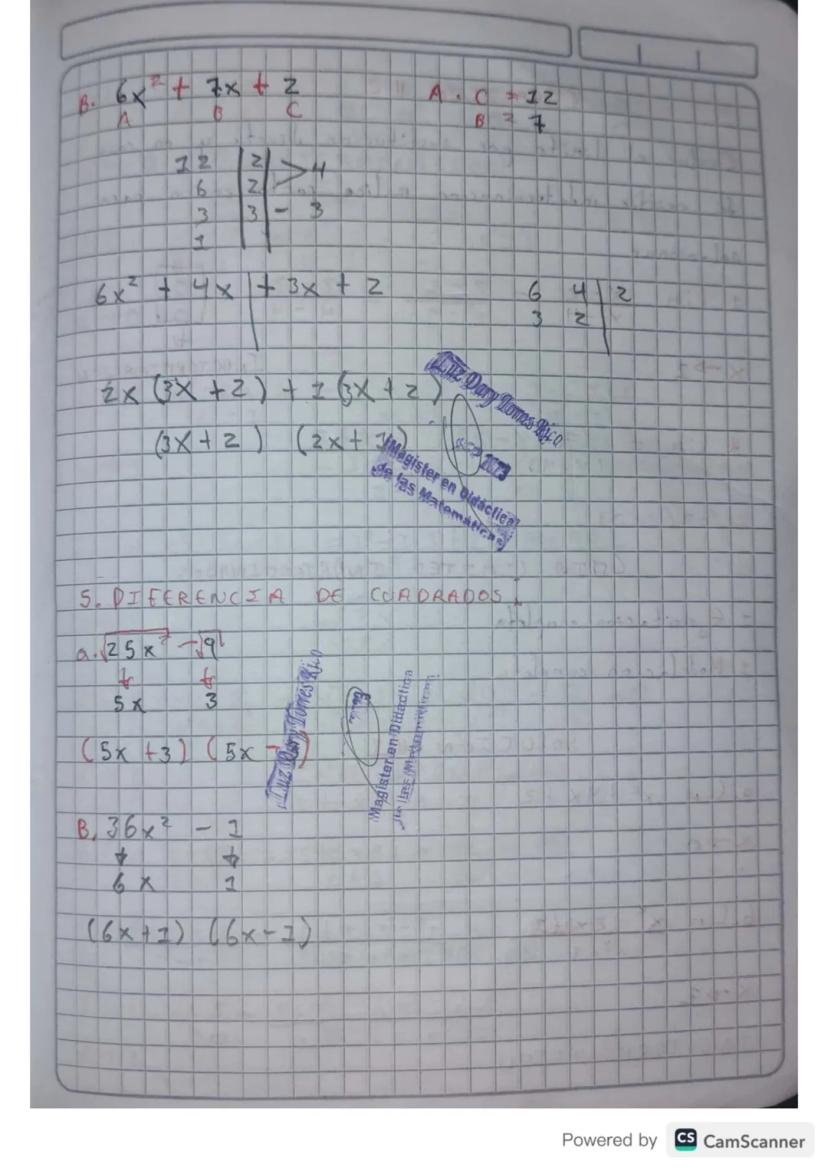 B. 6x² + 7x + 2
A B C
A · C = 12
B = 7
12 | 2 | > 4
6 | 2 |
3 | 3 | - 3
1
6x² + 4x | + 3x + 2
6 4 | 2
3 2 |
2x (3x + 2) + 1 (3x + 2)
(3x + 2) (2x + 1)
Luz Dary Torres Rico
2023
Magister en Didáctica
de las Matemáticas
5. DIFERENCIA DE CUADRADOS:
a. √25x² - √9
5x 3
(5x + 3) (5x -
Luz Dary Torres Rico
Magister en Didáctica
de las Matemáticas
B. 36x² - 1
6x 1
(6x + 1) (6x - 1)
Powered by CS CamScanner